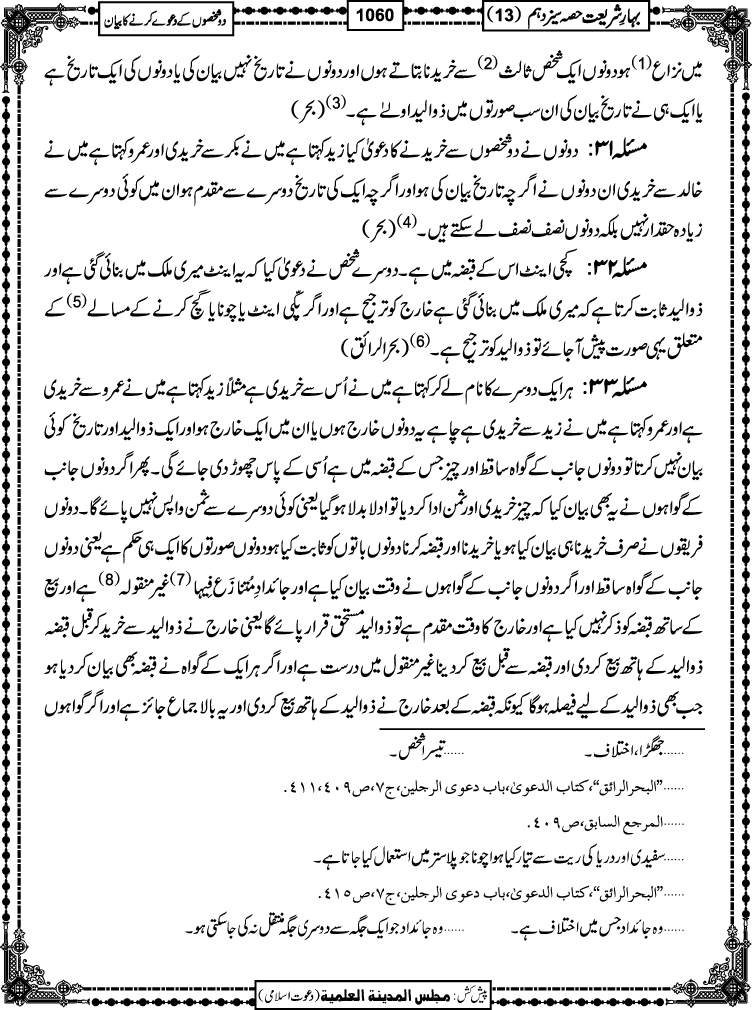 بہارِ شریعت حصہ سیزدہم (13)
1060
دو شخصوں کے دعوے کرنے کا بیان
میں نزاع (1) ہو دونوں ایک شخص ثالث (2) سے خریدنا بتاتے ہوں اور دونوں نے تاریخ نہیں بیان کی یا دونوں کی ایک تاریخ ہے
یا ایک ہی نے تاریخ بیان کی ان سب صورتوں میں ذوالید اولیٰ ہے۔(3) (بحر)
مسئلہ ۳۱: دونوں نے دو شخصوں سے خریدنے کا دعویٰ کیا زید کہتا ہے میں نے بکر سے خریدی اور عمرو کہتا ہے میں نے
خالد سے خریدی ان دونوں نے اگرچہ تاریخ بیان کی ہو اور اگرچہ ایک کی تاریخ دوسرے سے مقدم ہو ان میں کوئی دوسرے سے
زیادہ حقدار نہیں بلکہ دونوں نصف نصف لے سکتے ہیں۔(4) (بحر)
مسئلہ ۳۲: کچی اینٹ اس کے قبضہ میں ہے۔ دوسرے شخص نے دعویٰ کیا کہ یہ اینٹ میری ملک میں بنائی گئی ہے اور
ذوالید ثابت کرتا ہے کہ میری ملک میں بنائی گئی ہے خارج کو ترجیح ہے اور اگر پکّی اینٹ یا چونا یا گچ کرنے کے مسالے (5) کے
متعلق یہی صورت پیش آجائے تو ذوالید کو ترجیح ہے۔(6) (بحرالرائق)
مسئلہ ۳۳: ہر ایک دوسرے کا نام لے کر کہتا ہے میں نے اُس سے خریدی ہے مثلاً زید کہتا ہے میں نے عمرو سے خریدی
ہے اور عمرو کہتا ہے میں نے زید سے خریدی ہے چاہے یہ دونوں خارج ہوں یا ان میں ایک خارج ہو اور ایک ذوالید اور تاریخ کوئی
بیان نہیں کرتا تو دونوں جانب کے گواہ ساقط اور چیز جس کے قبضہ میں ہے اُسی کے پاس چھوڑ دی جائے گی۔ پھر اگر دونوں جانب
کے گواہوں نے یہ بھی بیان کیا کہ چیز خریدی اور ثمن ادا کر دیا تو ادلا بدلا ہوگیا یعنی کوئی دوسرے سے ثمن واپس نہیں پائے گا۔ دونوں
فریقوں نے صرف خریدنا ہی بیان کیا ہو یا خریدنا اور قبضہ کرنا دونوں باتوں کو ثابت کیا ہو دونوں صورتوں کا ایک ہی حکم ہے یعنی دونوں
جانب کے گواہ ساقط اور اگر دونوں جانب کے گواہوں نے وقت بیان کیا ہے اور جائدادِ مُتنازَع فِیھا (7) غیر منقولہ (8) ہے اور بیع
کے ساتھ قبضہ کو ذکر نہیں کیا ہے اور خارج کا وقت مقدم ہے تو ذوالید مستحق قرار پائے گا یعنی خارج نے ذوالید سے خرید کر قبل قبضہ
ذوالید کے ہاتھ بیع کردی اور قبضہ سے قبل بیع کر دینا غیر منقول میں درست ہے اور اگر ہر ایک کے گواہ نے قبضہ بھی بیان کردیا ہو
جب بھی ذوالید کے لیے فیصلہ ہوگا کیونکہ قبضہ کے بعد خارج نے ذوالید کے ہاتھ بیع کردی اور یہ بالاجماع جائز ہے اور اگر گواہوں
......جھگڑا، اختلاف۔ ......تیسرا شخص۔
......"البحرالرائق"، کتاب الدعویٰ، باب دعوی الرجلین، ج۷، ص۴۰۹، ۴۱۱.
......المرجع السابق، ص۴۰۹.
......سفیدی اور دریا کی ریت سے تیار کیا ہوا چونا جو پلاستر میں استعمال کیا جاتا ہے۔
......"البحرالرائق"، کتاب الدعویٰ، باب دعوی الرجلین، ج۷، ص۴۱۵.
......وہ جائداد جس میں اختلاف ہے۔ ......وہ جائداد جو ایک جگہ سے دوسری جگہ منتقل نہ کی جاسکتی ہو۔
پیش کش: مجلس المدینۃ العلمیۃ (دعوت اسلامی)